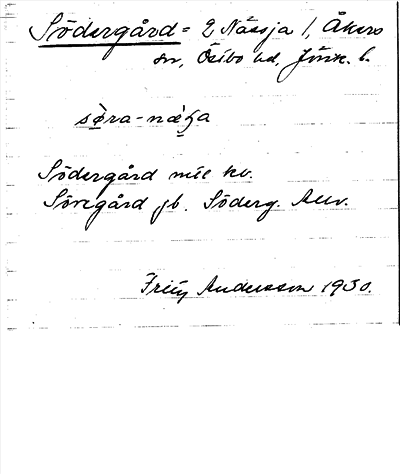 Södergård = 2 Nässja 1, Åkers
sn, Östbo hd, Jönk. l.
sø̀ra-næ̀ʒa
Södergård mil kv.
Söregård jb. Söderg. Auv.
Fritz Andersson 1930.